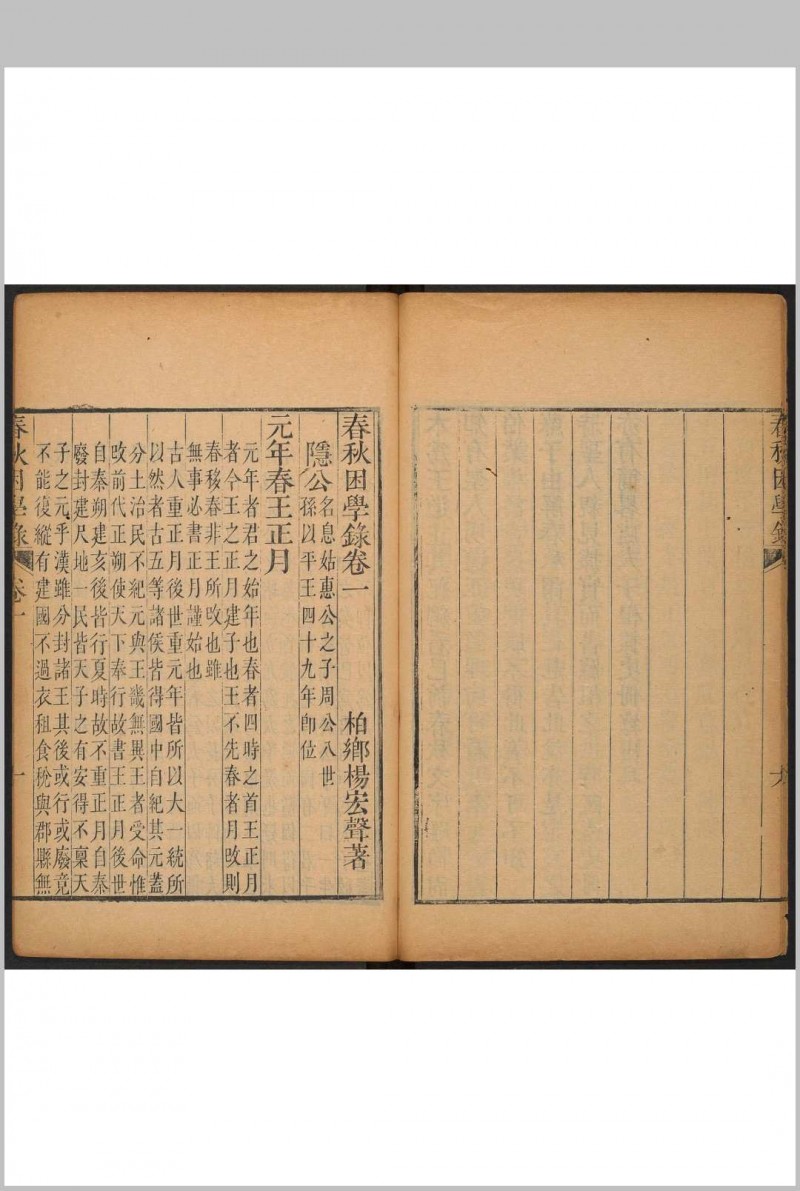 春秋困學錄
六
春秋困學錄卷一
柏鄉楊宏聲著
隱公
名息姑惠公之子周公八世
孫以平王四十九年卽位
元年春王正月
元年者君之始年也春者四時之首王正月
者今王之正月建子也王不先春者月改則
春移春非王所改也雖
無事必書正月謹始也
古人重正月後世重元年皆所以大一統所
以然者古五等諸侯皆得國中自紀其元蓋
分土治民不紀元與王畿無異王者受命惟
改前代正朔使天下奉行故書王正月後世
自秦朔建亥後皆行夏時故不重正月自秦
廢封建尺地一民皆天子之有安得不稟天
子之元乎漢雖分封諸王其後或行或廢竟
不能復縱有建國不過衣租食稅與郡縣無
春秋困學錄
卷一
一